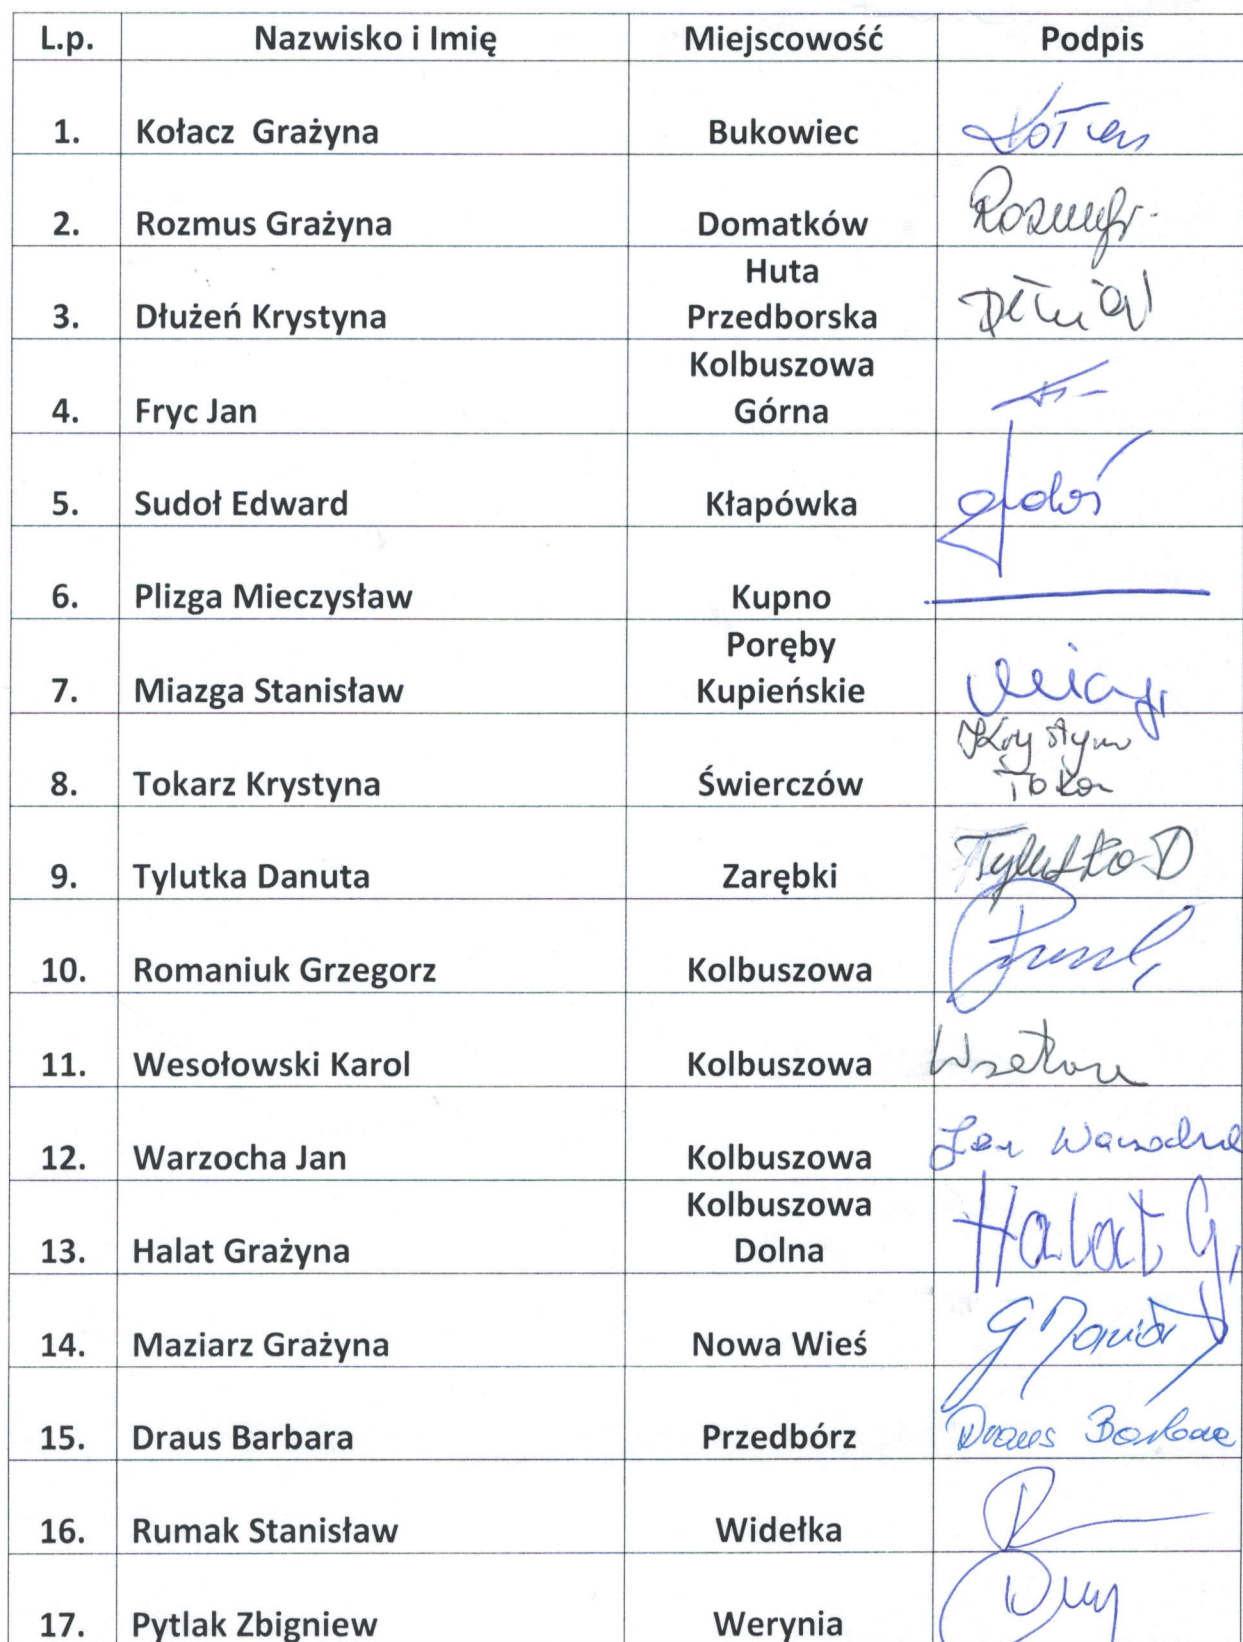 L.p. Nazwisko i Imię Miejscowość Podpis
1. Kołacz Grażyna Bukowiec
2. Rozmus Grażyna Domatków
Huta
3. Dłużeń Krystyna Przedborska
Kolbuszowa
4. Fryc Jan Górna
5. Sudoł Edward Kłapówka
6. Plizga Mieczysław Kupno
Poręby
7. Miazga Stanisław Kupieńskie
Krystyna
8. Tokarz Krystyna Świerczów
9. Tylutka Danuta Zarębki Tylutka D
10. Romaniuk Grzegorz Kolbuszowa
11. Wesołowski Karol Kolbuszowa
12. Warzocha Jan Kolbuszowa Jan Warzocha
Kolbuszowa
13. Halat Grażyna Dolna Halat G.
14. Maziarz Grażyna Nowa Wieś G Maziarz
15. Draus Barbara Przedbórz Draus Barbara
16. Rumak Stanisław Widełka
17. Pytlak Zbigniew Werynia